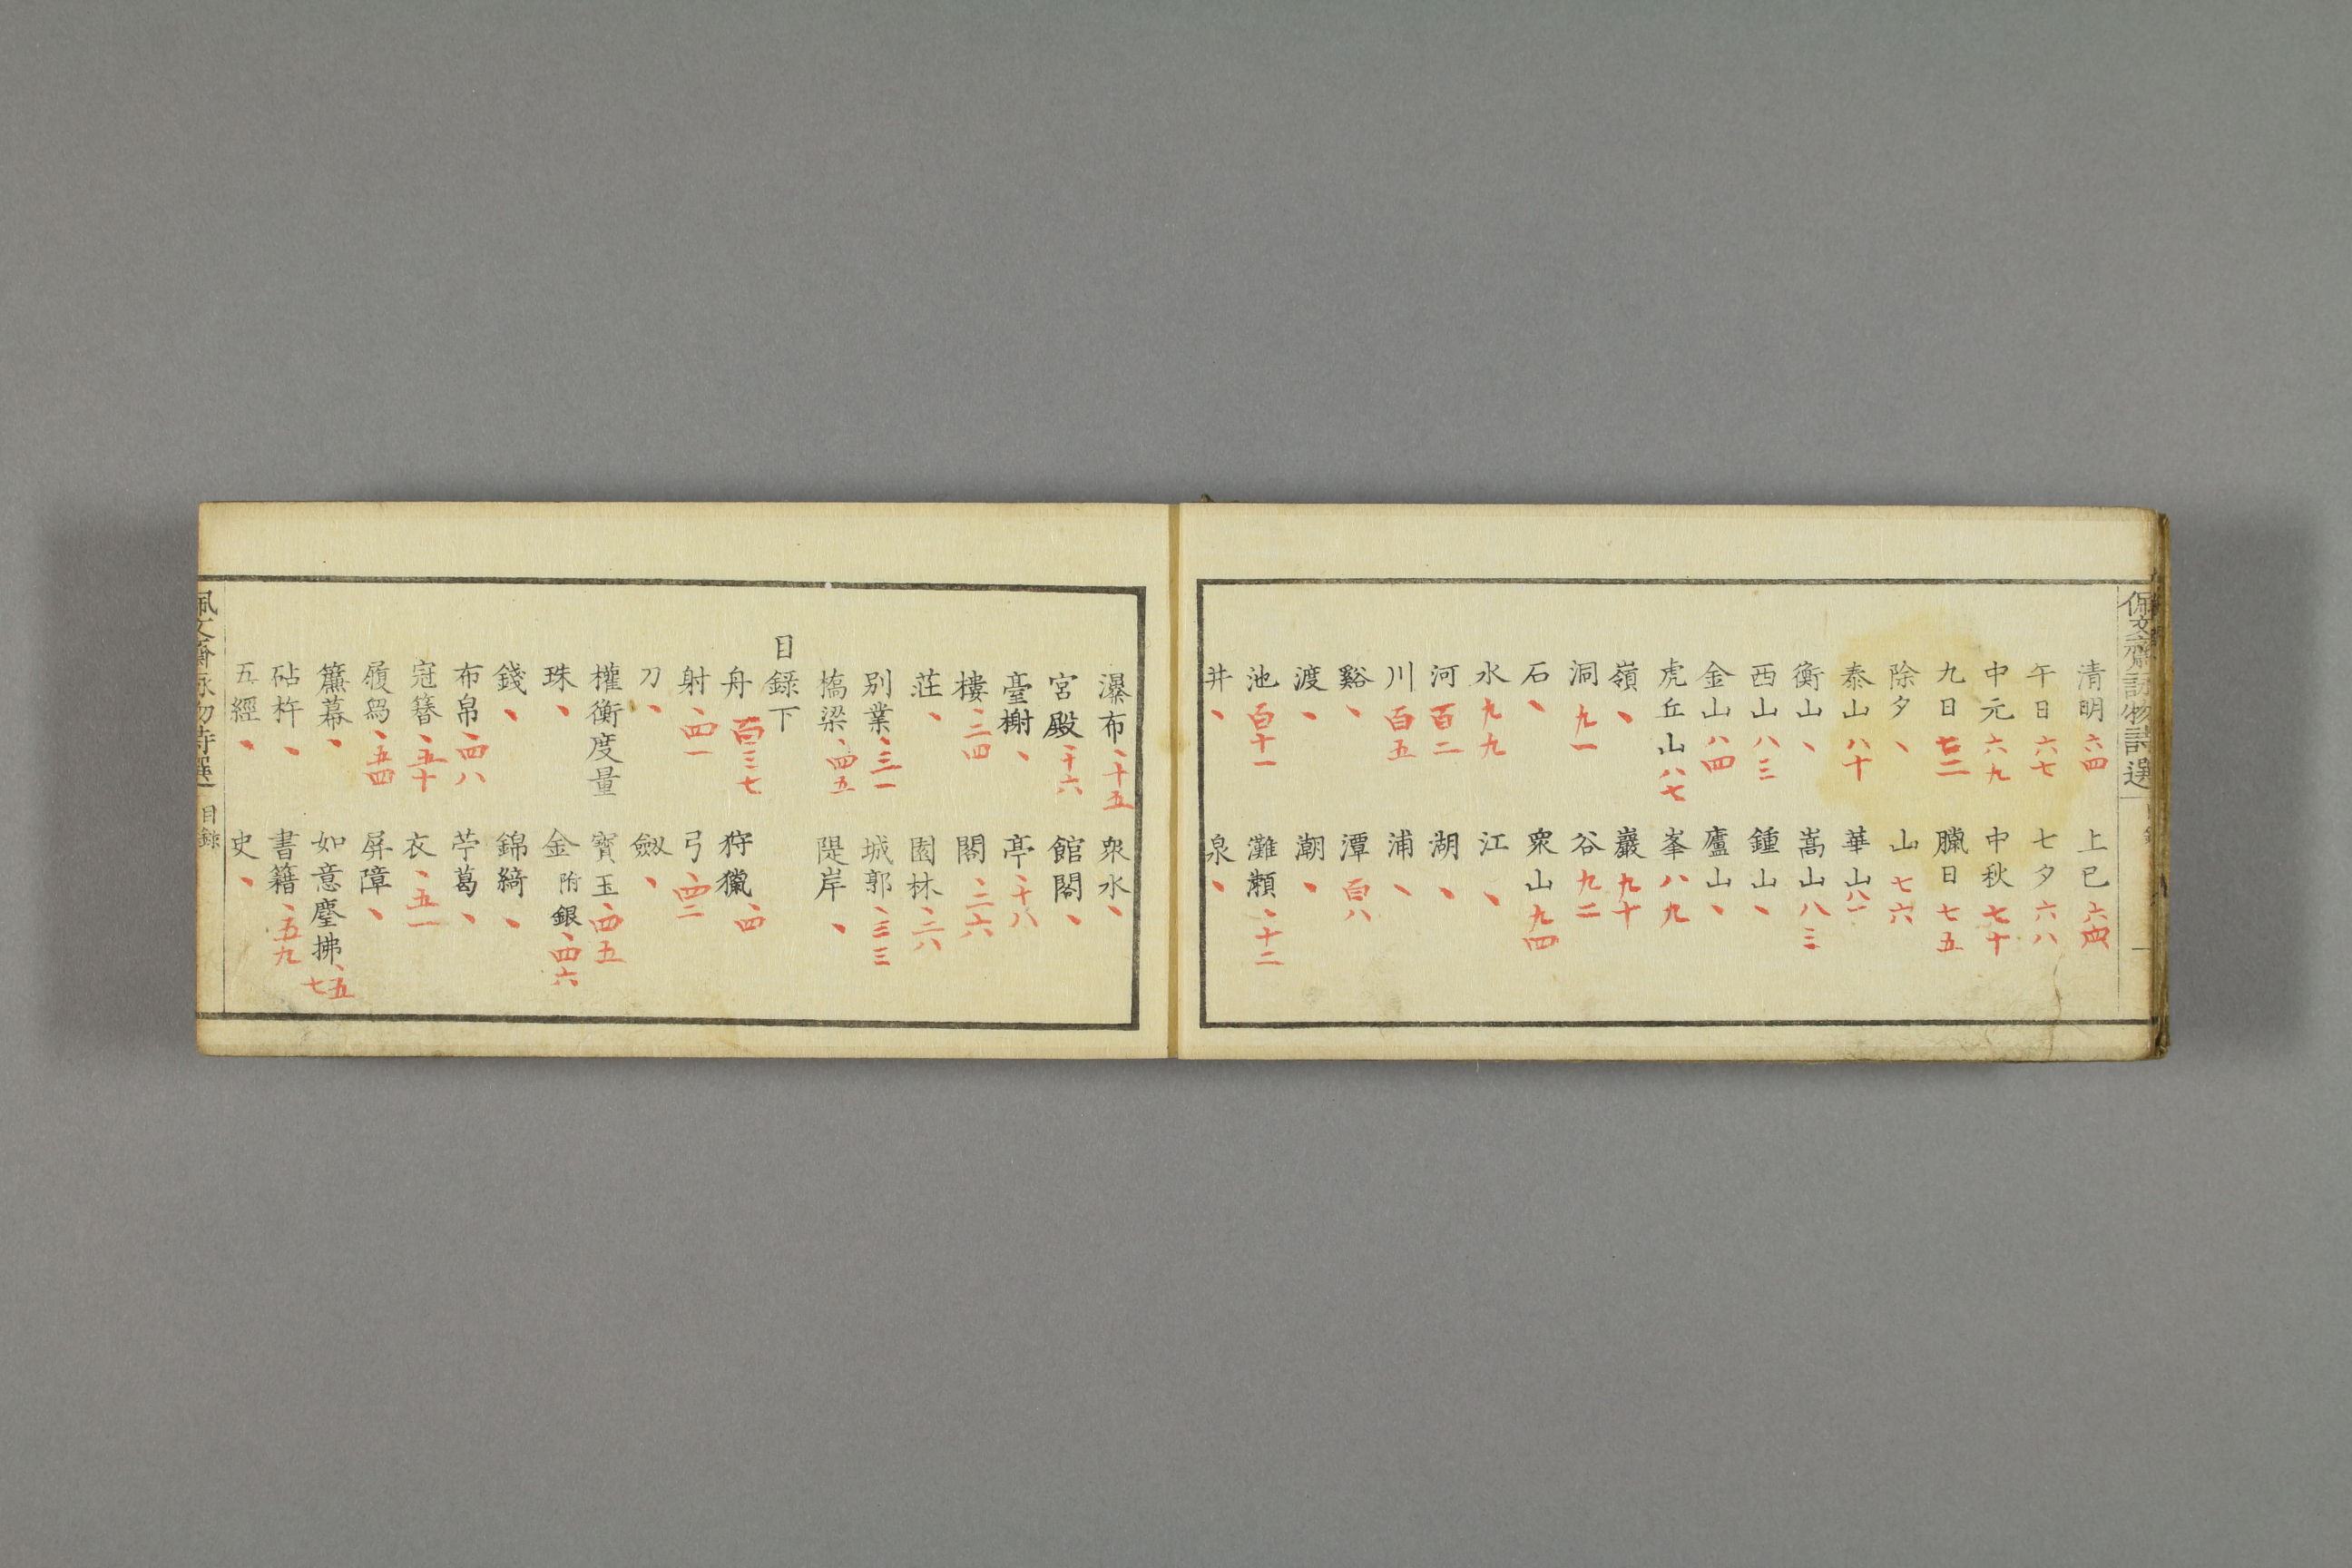 佩文齋詠物詩選 目録 一
清明 六四 上巳
午日 六七 七夕 六八
中元 六九 中秋 七十
九日 七二 臘日 七五
除夕 、 山 七六
泰山 八十 華山 八一
衡山 、 嵩山 八三
西山 八三 鍾山 、
金山 八四 廬山 、
虎丘山 八七 峯 八九
嶺 、 巖 九十
洞 九一 谷 九二
石 、 衆山 九四
水 九九 江 、
河 百二 湖 、
川 百五 浦 、
谿 、 潭 百八
渡 、 潮 、
池 百十一 灘瀬 、十二
井 、 泉 、
瀑布 、十五 衆水 、
宮殿 、十六 館閣 、
臺榭 、 亭 、十八
樓 、二四 閣 、二六
莊 、 園林 、二八
別業 、三一 城郭 、三三
橋梁 、四五 隄岸 、
目録下
舟 百三七 狩獵 、四
射 、四一 弓 、四二
刀 、 劔 、
權衡度量 寳玉 、四五
珠 、 金 附銀 、四六
錢 、 錦綺 、
布帛 、四八 苧葛 、
冠簪 、五十 衣 、五一
履舄 、五四 屏障 、
簾幕 、 如意麈拂 、五七
砧杵 、 書籍 、五九
五經 、 史 、
佩文齋詠物詩選 目録